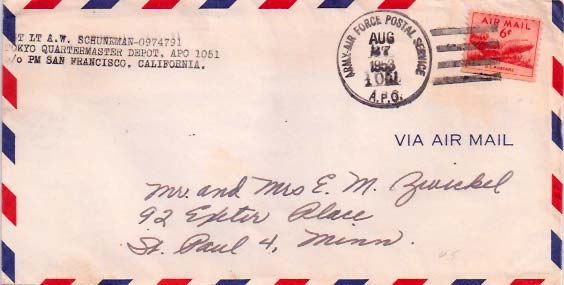 ST LT A.W. SCHUNEMAN-0974791
TOKYO QUARTERMASTER DEPOT, APO 1051
c/o PM SAN FRANCISCO, CALIFORNIA.
ARMY-AIR FORCE POSTAL SERVICE
AUG
27
1953
1051
A.P.O.
AIR MAIL
6¢
VIA AIR MAIL
Mr. and Mrs E. M. Zwickel
92 Exeter Place
St. Paul 4, Minn.